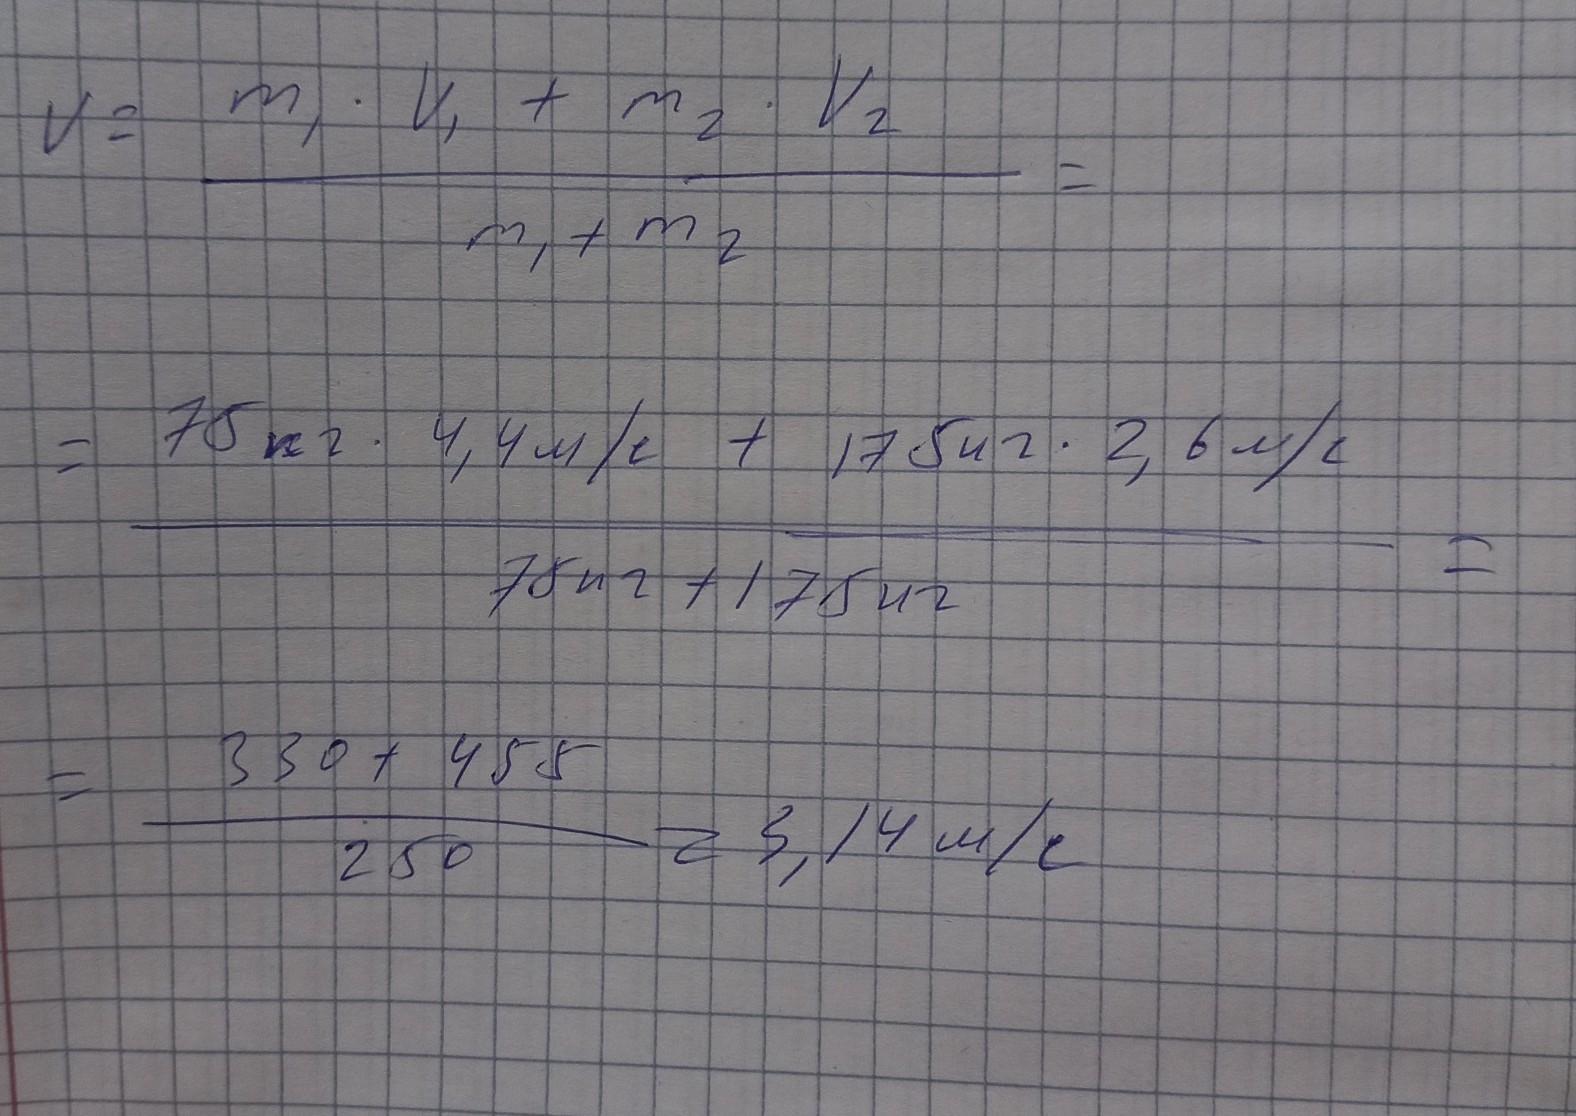 V = m₁ · V₁ + m₂ · V₂ =
m₁ + m₂
= 75кг · 4,4м/с + 175кг · 2,6м/с
75кг + 175кг =
= 330 + 455
250 = 3,14м/с